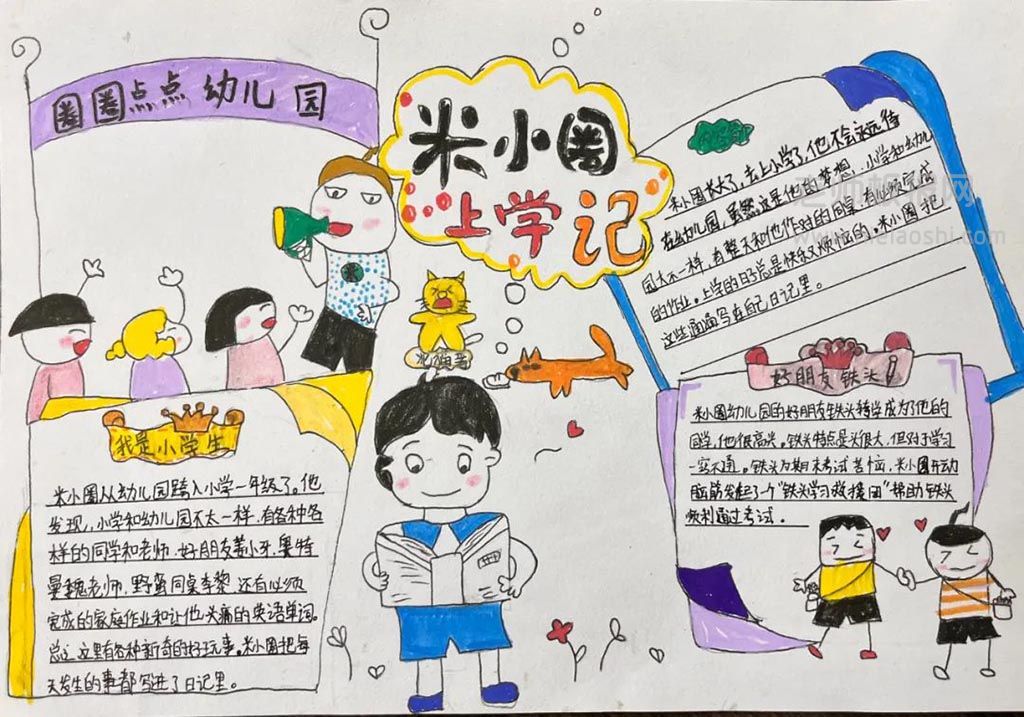 圈圈点点幼儿园
米小圈
上学记
米小圈长大了,去上小学了,他不会永远待
在幼儿园,虽然这是他的梦想。小学和幼儿
园大不一样,有整天和他作对的同桌,有必须完成
的作业。上学的日子总是快乐又烦恼的。米小圈把
这些通通写在自己日记里。
好朋友铁头!
米小圈幼儿园的好朋友铁头转学成为了他的
同学,他很高兴。铁头特点是头很大,但对于学习
一窍不通。铁头为期末考试苦恼,米小圈开动
脑筋发起了一个"铁头学习救援团"帮助铁头
顺利通过考试.
我是小学生
米小圈从幼儿园跨入小学一年级了。他
发现,小学和幼儿园不太一样,有各种各
样的同学和老师,好朋友姜小牙,奥特
曼魏老师,野蛮同桌李黎,还有必须
完成的家庭作业和让他头痛的英语单词。
总之这里有各种新奇的好玩事。米小圈把每
天发生的事都写进了日记里。